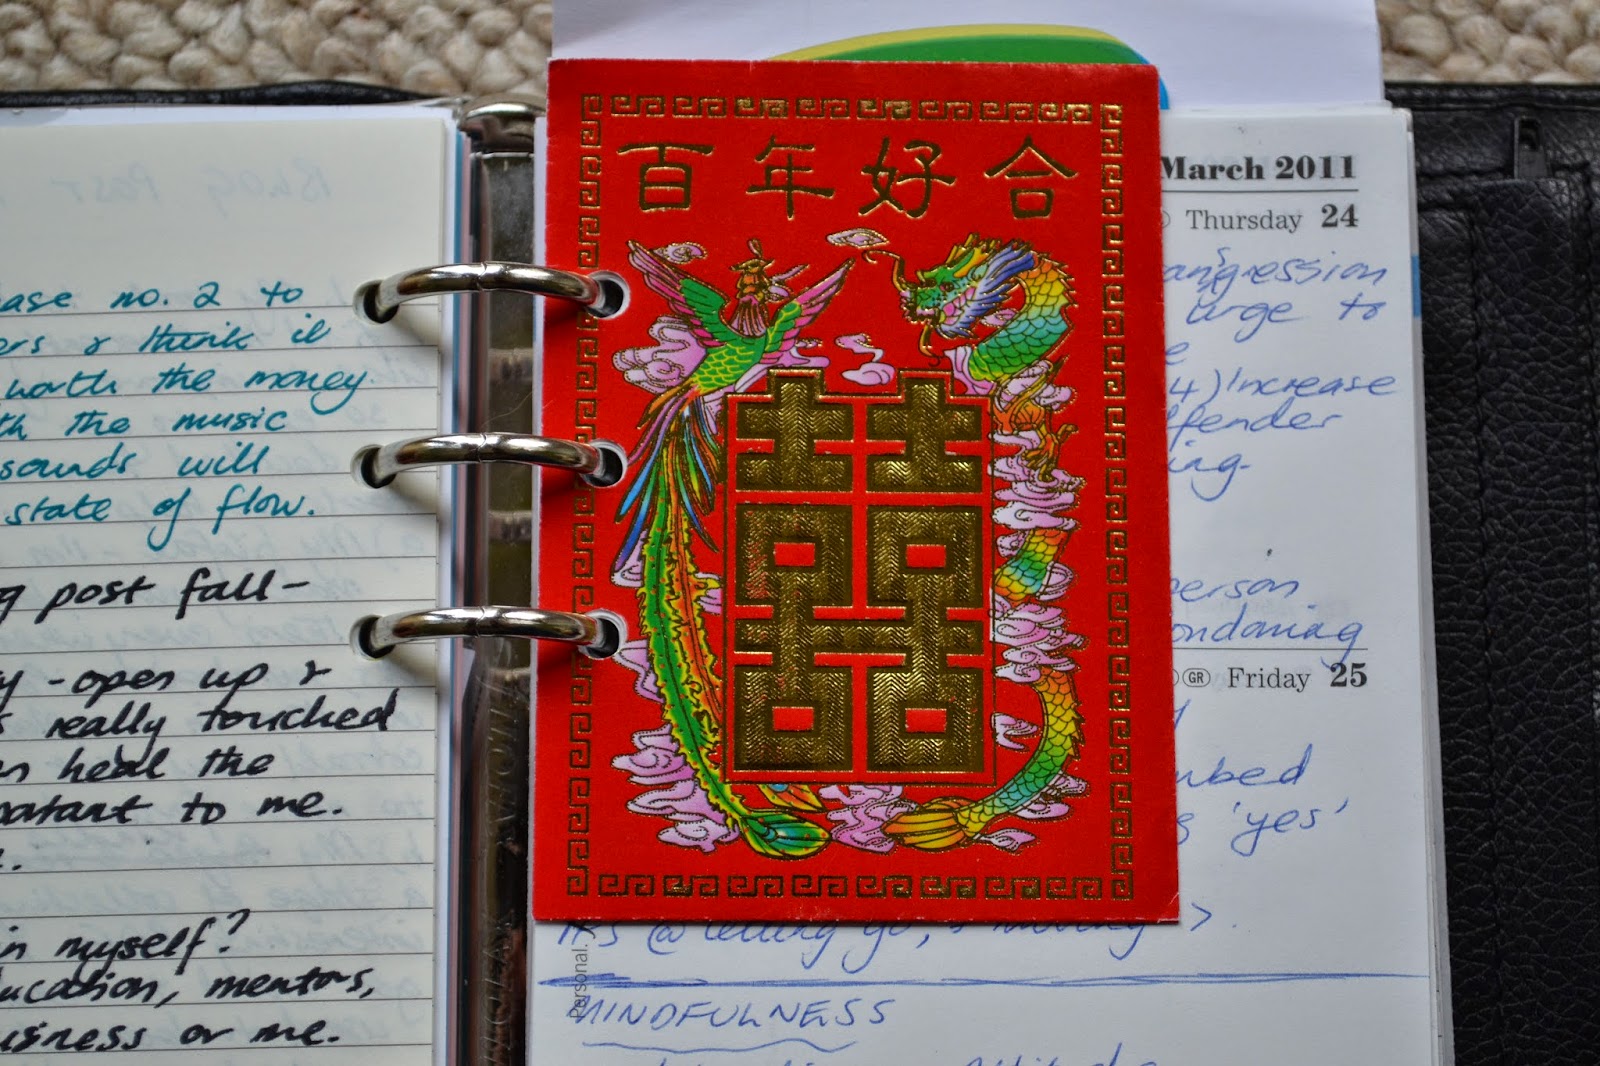 Blog Post
ase no. 2 to
ers & think it
worth the money.
th the music
sounds will
state of flow.
g post fall-
y - open up &
s really touched
n heal the
portant to me.
in myself?
ucation, mentors,
usiness or me.
百年好合
囍
March 2011
Thursday 24
angression
urge to
e
4) Increase
ffender
ing.
person
ondoning
GR Friday 25
mbed
s 'yes'
It's @ letting go, & moving >.
Personal.
MINDFULNESS